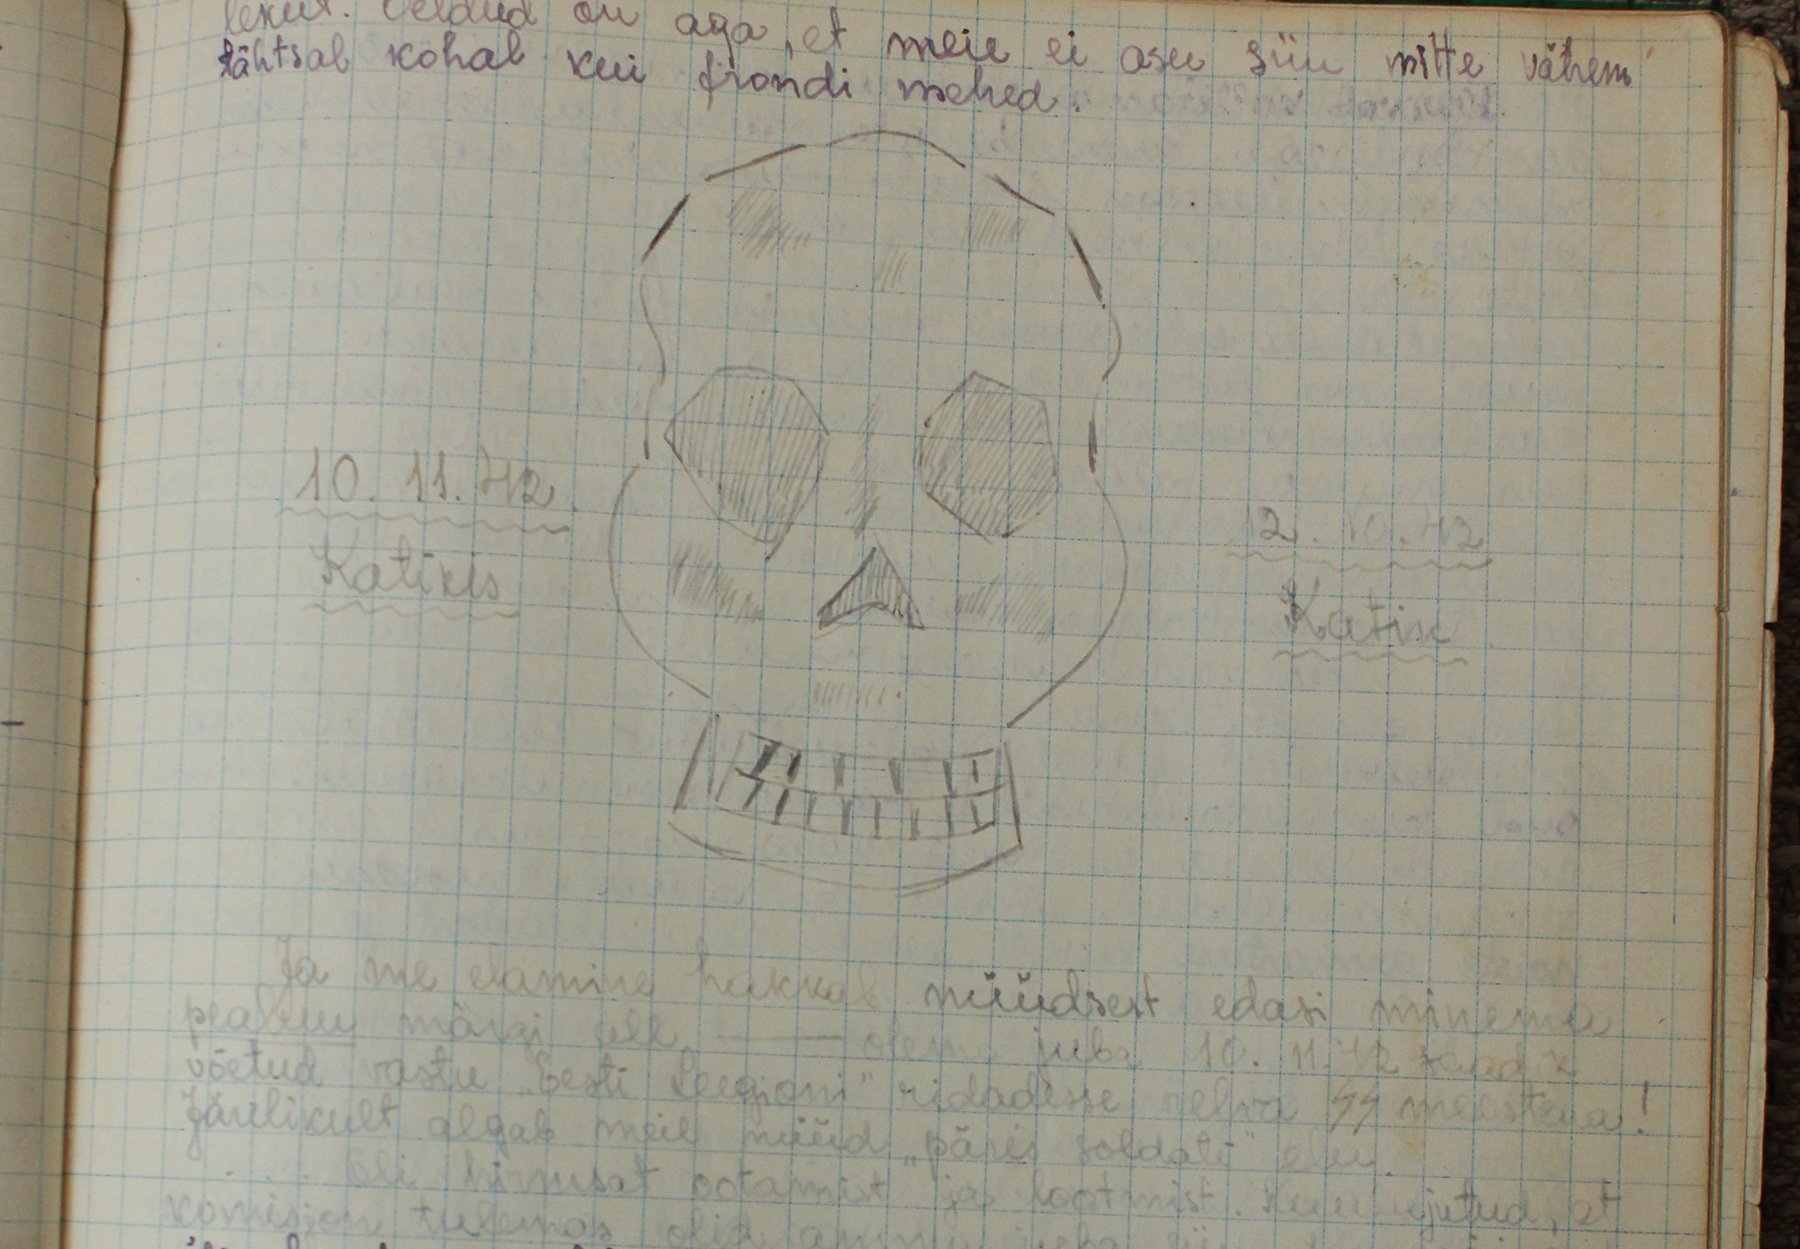 öeldud on aga, et meie ei asu siin mitte vähem
tähtsal kohal kui frondi mehed.
10. 11. 42
Katikis
12. 10. 42
Katik
Ja me elamine hakkab nüüdsest edasi minema
pealuu märgi all. — oleme juba 10. 11. 42 saadik
võetud vastu „Eesti Leegioni" ridadesse relva SS meestena!
Järelikult algab meil nüüd „päris soldati" elu.
..... Oli hirmsat ootamist ja lootmist. Kuulujutud, et
komisjon tulemas olid ammu juba